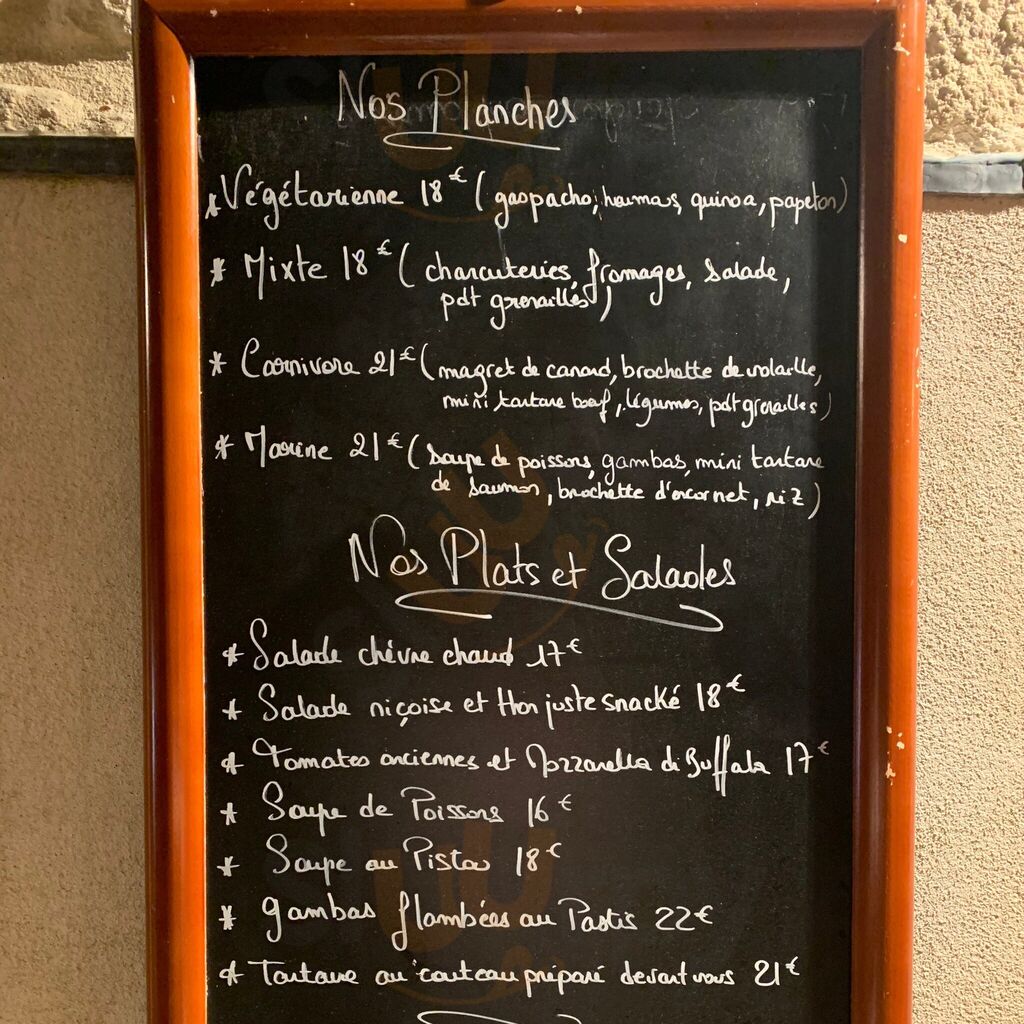 Nos Planches
* Végétarienne 18€ (gaspacho, houmas, quinoa, papeton)
* Mixte 18€ (charcuteries, fromages, salade,
pdt grenailles)
* Carnivore 21€ (magret de canard, brochette de volaille,
mini tartare bœuf, légumes, pdt grenailles)
* Marine 21€ (soupe de poissons, gambas, mini tartare
de saumon, brochette d'encornet, riz)
Nos Plats et Salades
* Salade chèvre chaud 17€
* Salade niçoise et thon juste snacké 18€
* Tomates anciennes et Mozzarella di Buffala 17€
* Soupe de Poissons 16€
* Soupe au Pistou 18€
* Gambas flambées au Pastis 22€
* Tartare au couteau préparé devant vous 21€